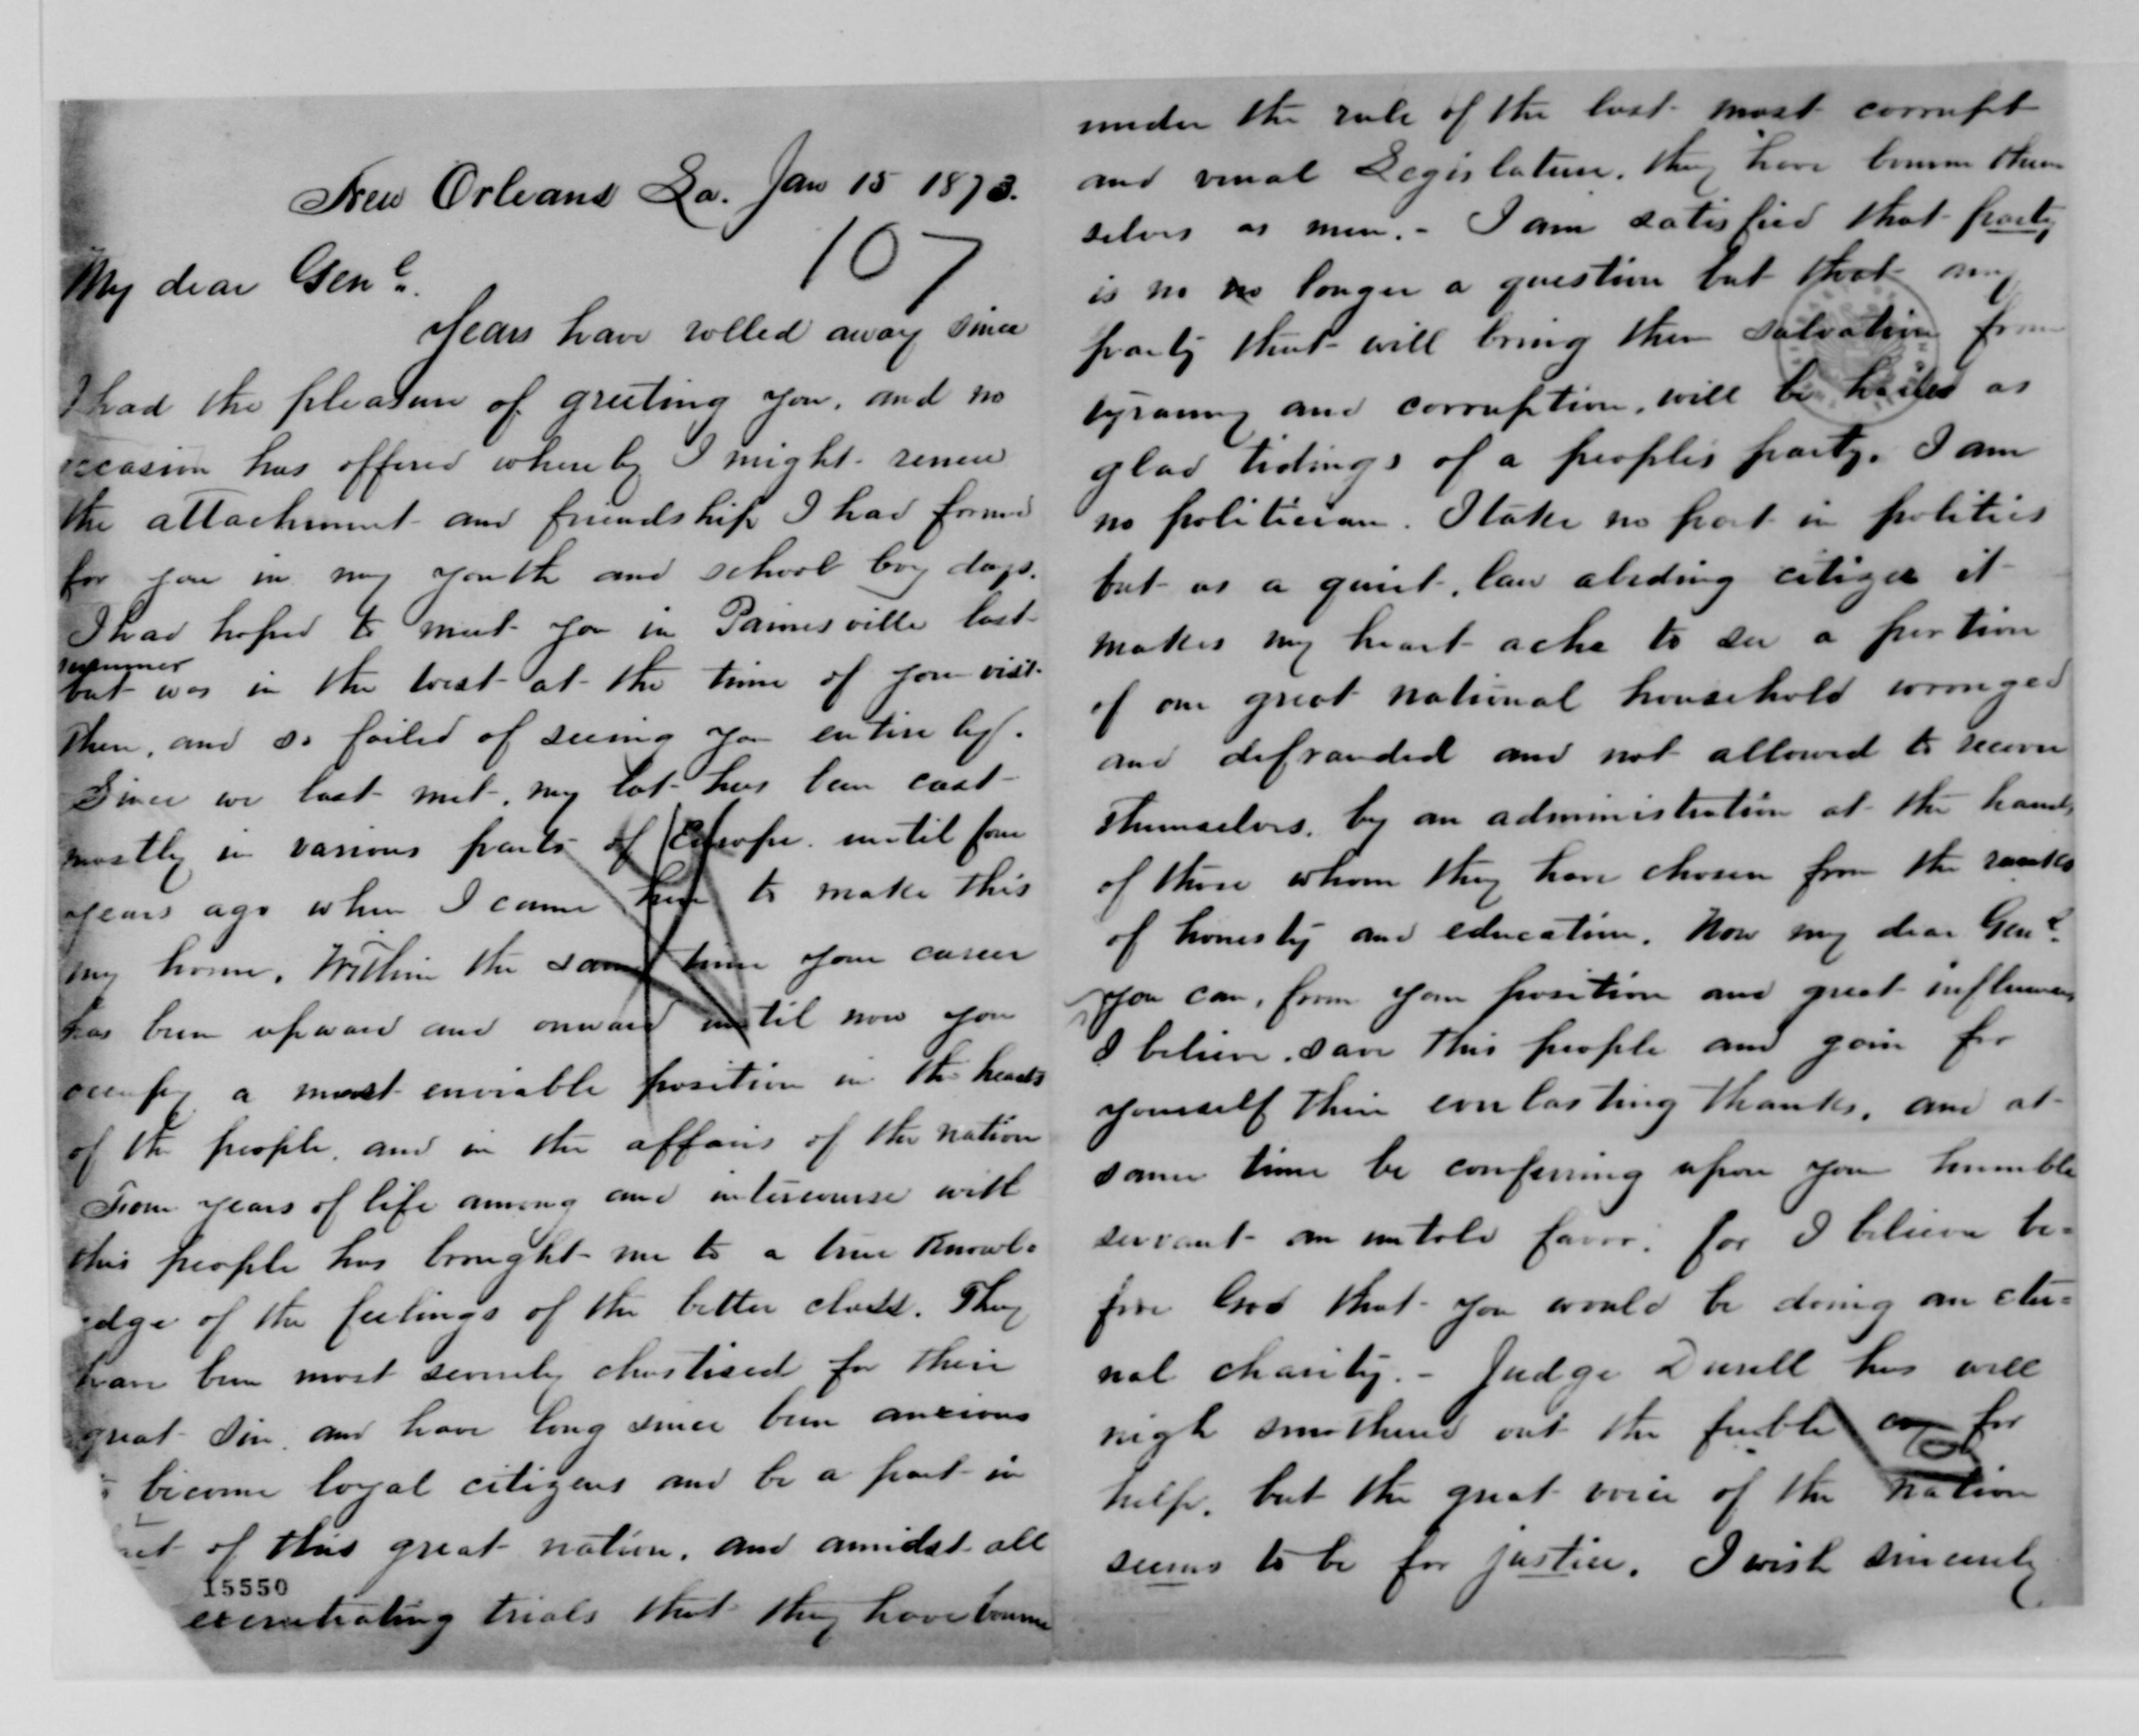 New Orleans La. Jan 15 1873.
107
My dear Genl.
Years have rolled away since
I had the pleasure of greeting you, and no
occasion has offered whereby I might renew
the attachment and friendship I had formed
for you in my youth and school boy days.
I had hoped to meet you in Painesville last
summer
but was in the West at the time of your visit
then, and so failed of seeing you entirely.
Since we last met, my lot has been cast
mostly in various parts of Europe until four
years ago when I came here to make this
my home. Within the same time your career
has been upward and onward until now you
occupy a most enviable position in the hearts
of the people, and in the affairs of the nation
Four years of life among and intercourse with
this people has brought me to a true knowl=
edge of the feelings of the better class. They
have been most severely chastised for their
great sin, and have long since been anxious
become loyal citizens and be a part in
of this great nation, and amidst all
15550
excruciating trials that they have bourne
under the rule of the last most corrupt
and venal Legislature, they have bourne them
selves as men. - I am satisfied that party
is no no longer a question but that any
party that will bring them salvation from
tyranny and corruption, will be hailed as
glad tidings of a peoples party. I am
no politician. I take no part in politics
but as a quiet, law abiding citizen it
makes my heart ache to see a portion
of our great national household wronged
and defrauded and not allowed to
themselves, by an administration at the hands
of those whom they have chosen from the ranks
of honesty and education. Now my dear Genl.
you can, from your position and great influence
I believe, save this people and gain for
yourself their everlasting thanks, and at
same time be conferring upon your humble
servant an untold favor. for I believe be=
fore God that you would be doing an eter=
nal charity. - Judge Durell has well
nigh smothered out the feeble cry for
help, but the great voice of the nation
seems to be for justice. I wish sincerely